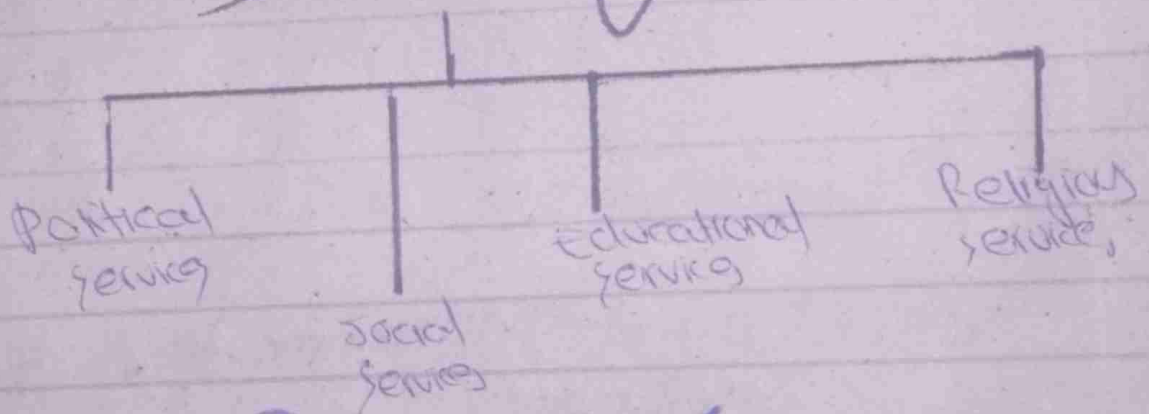 Political
services
Social
Services
Educational
services
Religious
service,